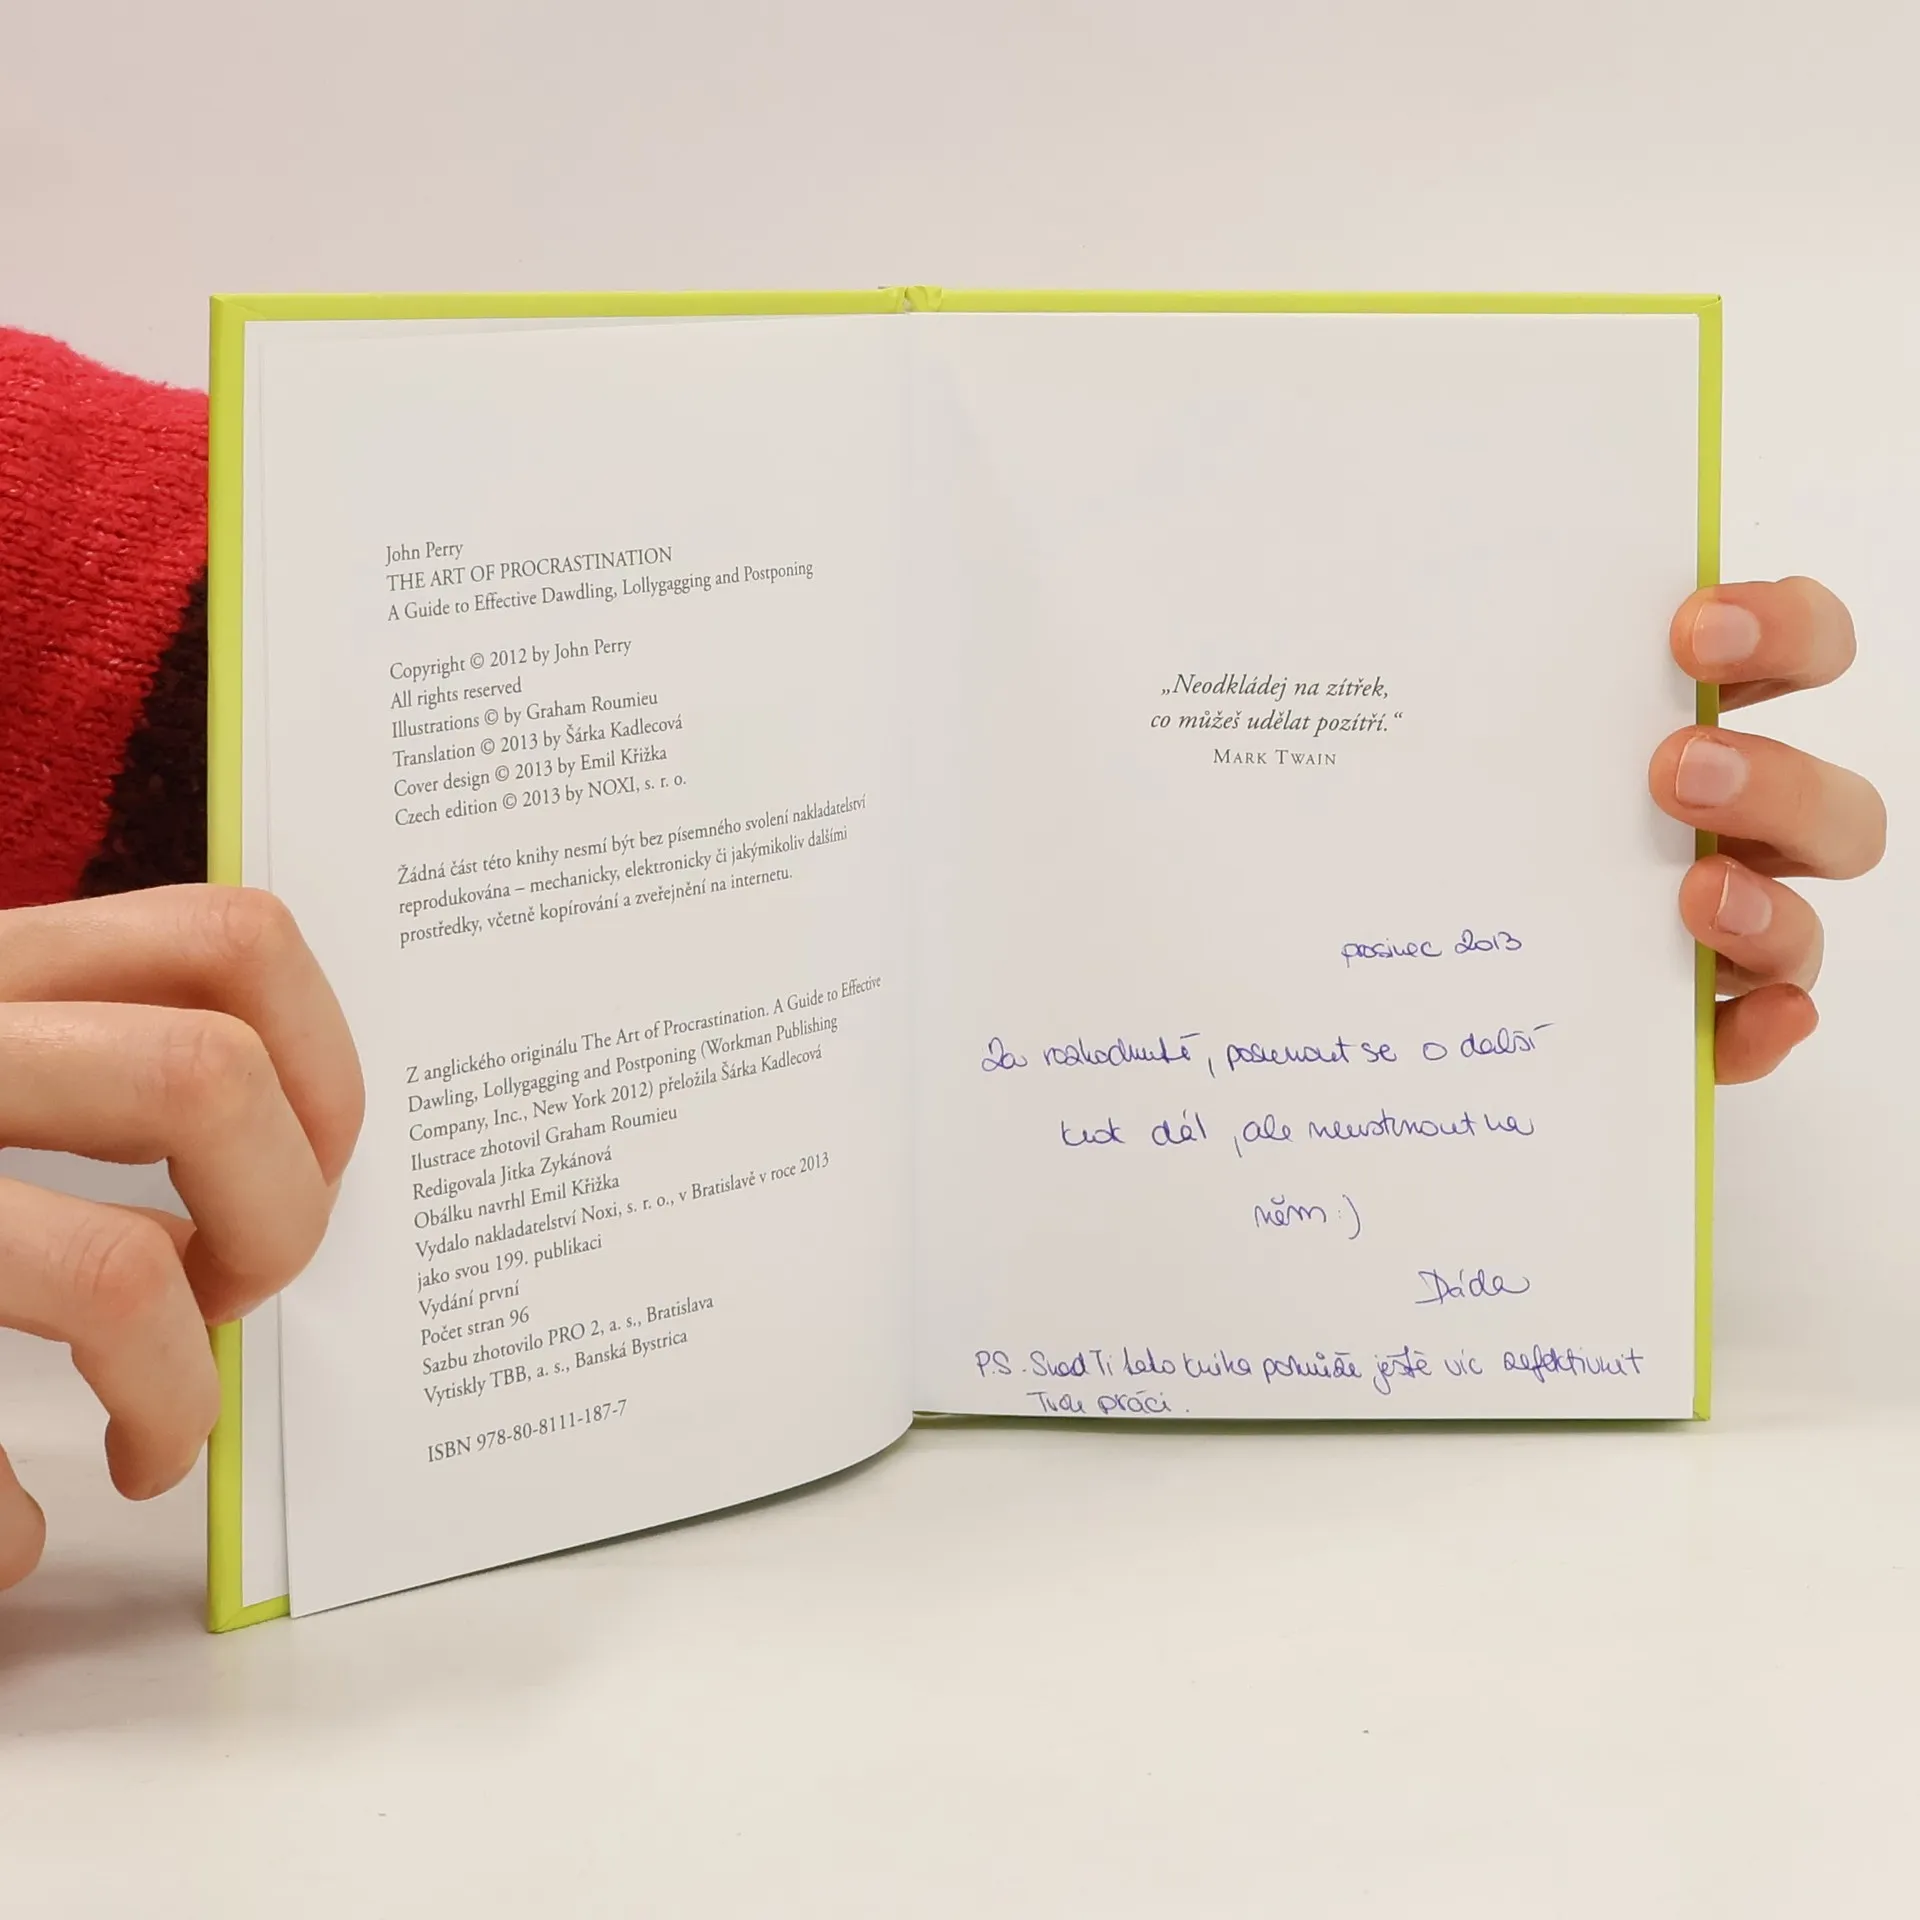 John Perry
THE ART OF PROCRASTINATION
A Guide to Effective Dawdling, Lollygagging and Postponing
Copyright © 2012 by John Perry
All rights reserved
Illustrations © by Graham Roumieu
Translation © 2013 by Šárka Kadlecová
Cover design © 2013 by Emil Křižka
Czech edition © 2013 by NOXI, s. r. o.
Žádná část této knihy nesmí být bez písemného svolení nakladatelství
reprodukována – mechanicky, elektronicky či jakýmikoliv dalšími
prostředky, včetně kopírování a zveřejnění na internetu.
Z anglického originálu The Art of Procrastination. A Guide to Effective
Dawling, Lollygagging and Postponing (Workman Publishing
Company, Inc., New York 2012) přeložila Šárka Kadlecová
Ilustrace zhotovil Graham Roumieu
Redigovala Jitka Zykánová
Obálku navrhl Emil Křižka
Vydalo nakladatelství Noxi, s. r. o., v Bratislavě v roce 2013
jako svou 199. publikaci
Vydání první
Počet stran 96
Sazbu zhotovilo PRO 2, a. s., Bratislava
Vytiskly TBB, a. s., Banská Bystrica
ISBN 978-80-8111-187-7
„Neodkládej na zítřek,
co můžeš udělat pozítří.“
MARK TWAIN
prosinec 2013
Za rozhodnutí, posunout se o další
krok dál, ale neustrnout na
něm :)
Dáda
P.S. Snad Ti tato kniha pomůže ještě víc zefektivnit
Tvou práci.